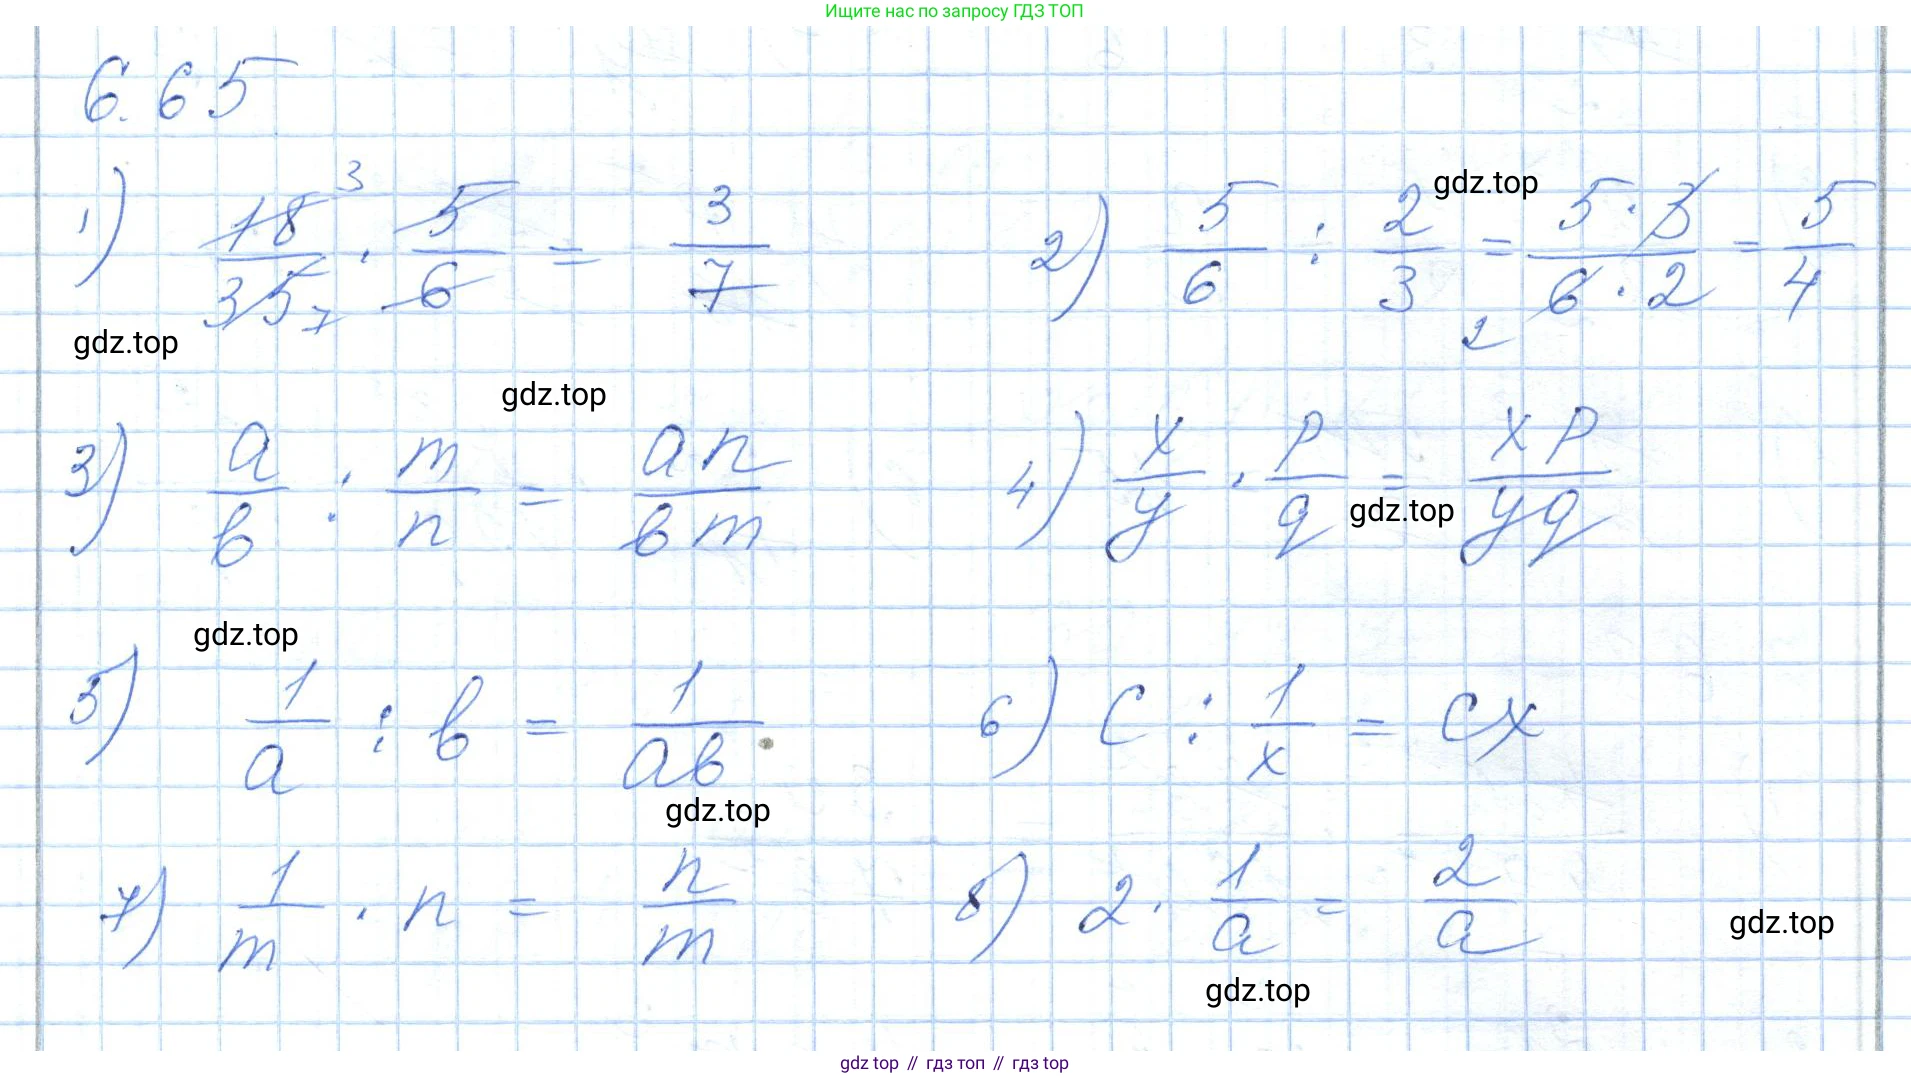 Ищите нас по запросу ГДЗ ТОП
6.65
1) 18/35 · 5/6 = 3/7 3 7
2) 5/6 : 2/3 = 5·3/6·2 = 5/4 2
gdz.top
gdz.top
gdz.top
3) a/b : m/n = an/bm
4) x/y · p/q = xp/yq
gdz.top
gdz.top
5) 1/a : b = 1/ab
6) c : 1/x = cx
gdz.top
7) 1/m · n = n/m
8) 2 · 1/a = 2/a
gdz.top
gdz.top
gdz top // гдз топ // гдз top